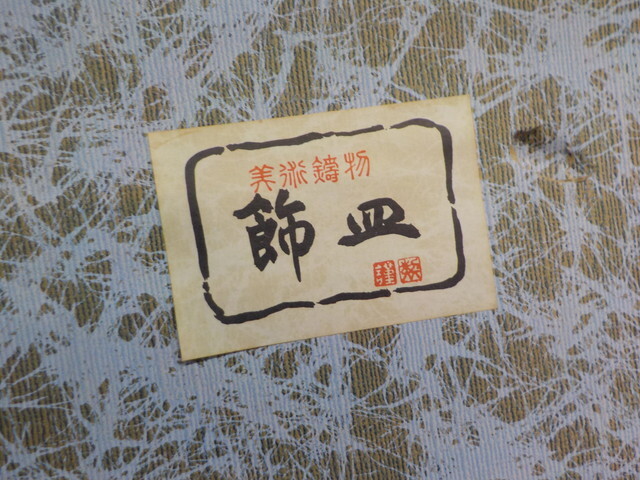 美術鋳物
飾皿
謹製